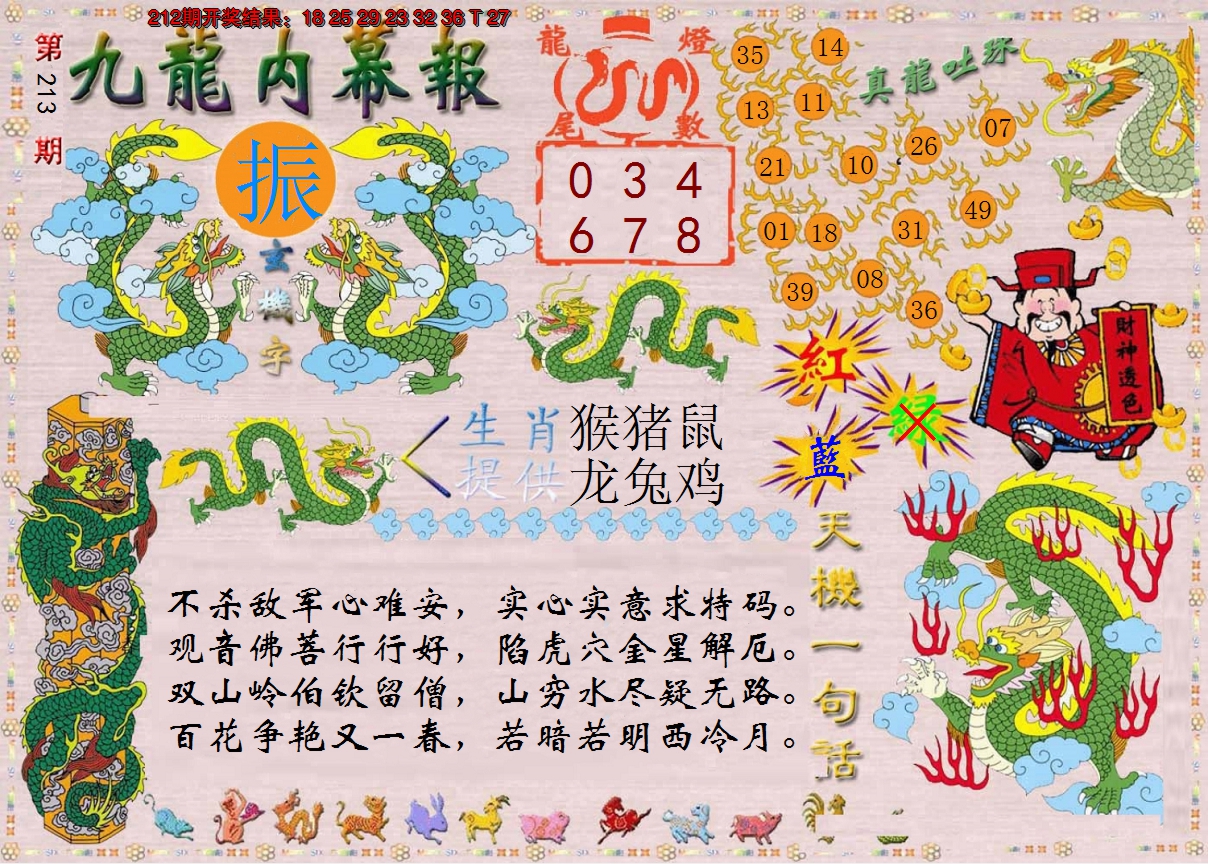 212期开奖结果：18 25 29 23 32 36 T 27
第213期
九龍内幕報
振
玄機字
龍燈
尾數
0 3 4
6 7 8
真龍吐珠
35 14
13 11
21 10 26 07
01 18 31 49
39 08 36
財神透色
紅
绿
藍
生肖 猴猪鼠
提供 龙兔鸡
天機一句話
不杀敌军心难安，实心实意求特码。
观音佛菩行行好，陷虎穴金星解厄。
双山岭伯钦留僧，山穷水尽疑无路。
百花争艳又一春，若暗若明西冷月。